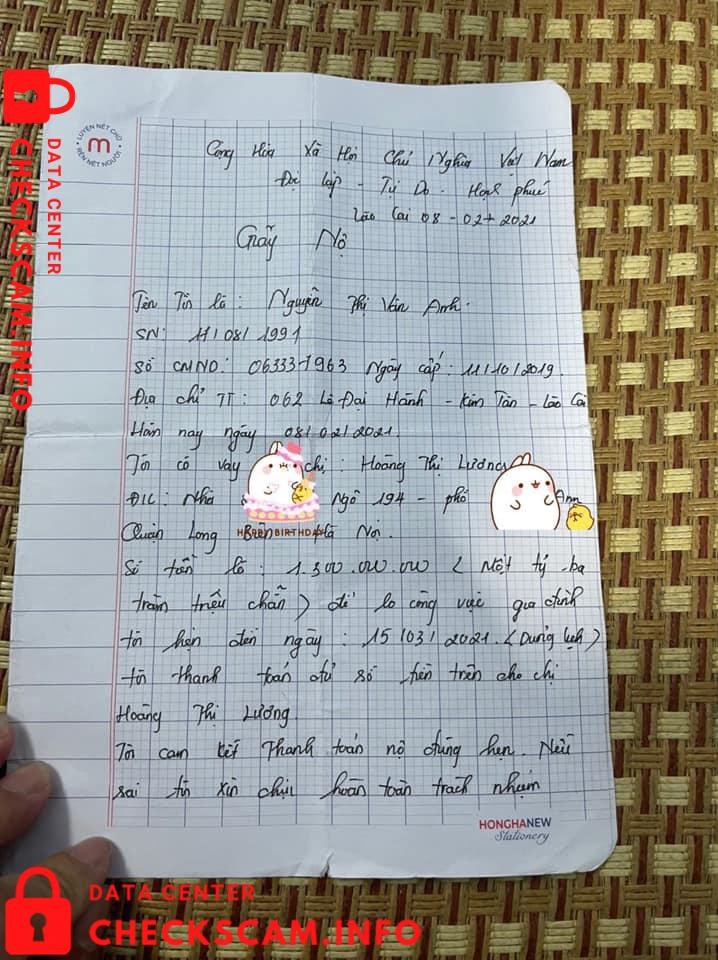 LUYỆN NÉT CHỮ
RÈN NẾT NGƯỜI
m
Cộng Hòa Xã Hội Chủ Nghĩa Việt Nam
Độc lập - Tự Do - Hạnh phúc
Lào Cai 08-02-2021
Giấy Nợ
Tên Tôi là: Nguyễn Thị Vân Anh.
SN: 11/08/1991
Số CMND: 063337963 Ngày cấp: 11/10/2019.
Địa chỉ TT: 062 Lê Đại Hành - Kim Tân - Lào Cai
Hôm nay ngày 08/02/2021.
Tôi có vay chị: Hoàng Thị Lương
Đ/C: Nhà Ngõ 194 - phố Anh
Quận Long Biên Hà Nội.
HAPPY BIRTHDAY
Số tiền là: 1.300.000.000 (Một tỷ ba
trăm triệu chẵn) để lo công việc gia đình
tôi hẹn đến ngày: 15/03/2021. (Dương lịch)
tôi thanh toán đủ số tiền trên cho chị
Hoàng Thị Lương.
Tôi cam kết Thanh toán nợ đúng hẹn. Nếu
sai tôi xin chịu hoàn toàn trách nhiệm
HONGHANEW
Stationery
DATA CENTER
CHECKSCAM.INFO
DATA CENTER
CHECKSCAM.INFO